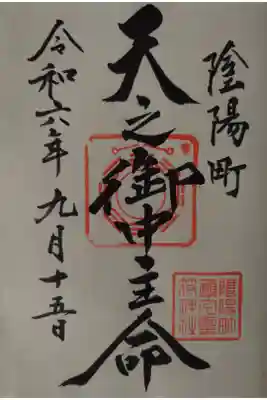 陰陽町
天之御中主命
令和六年九月十五日